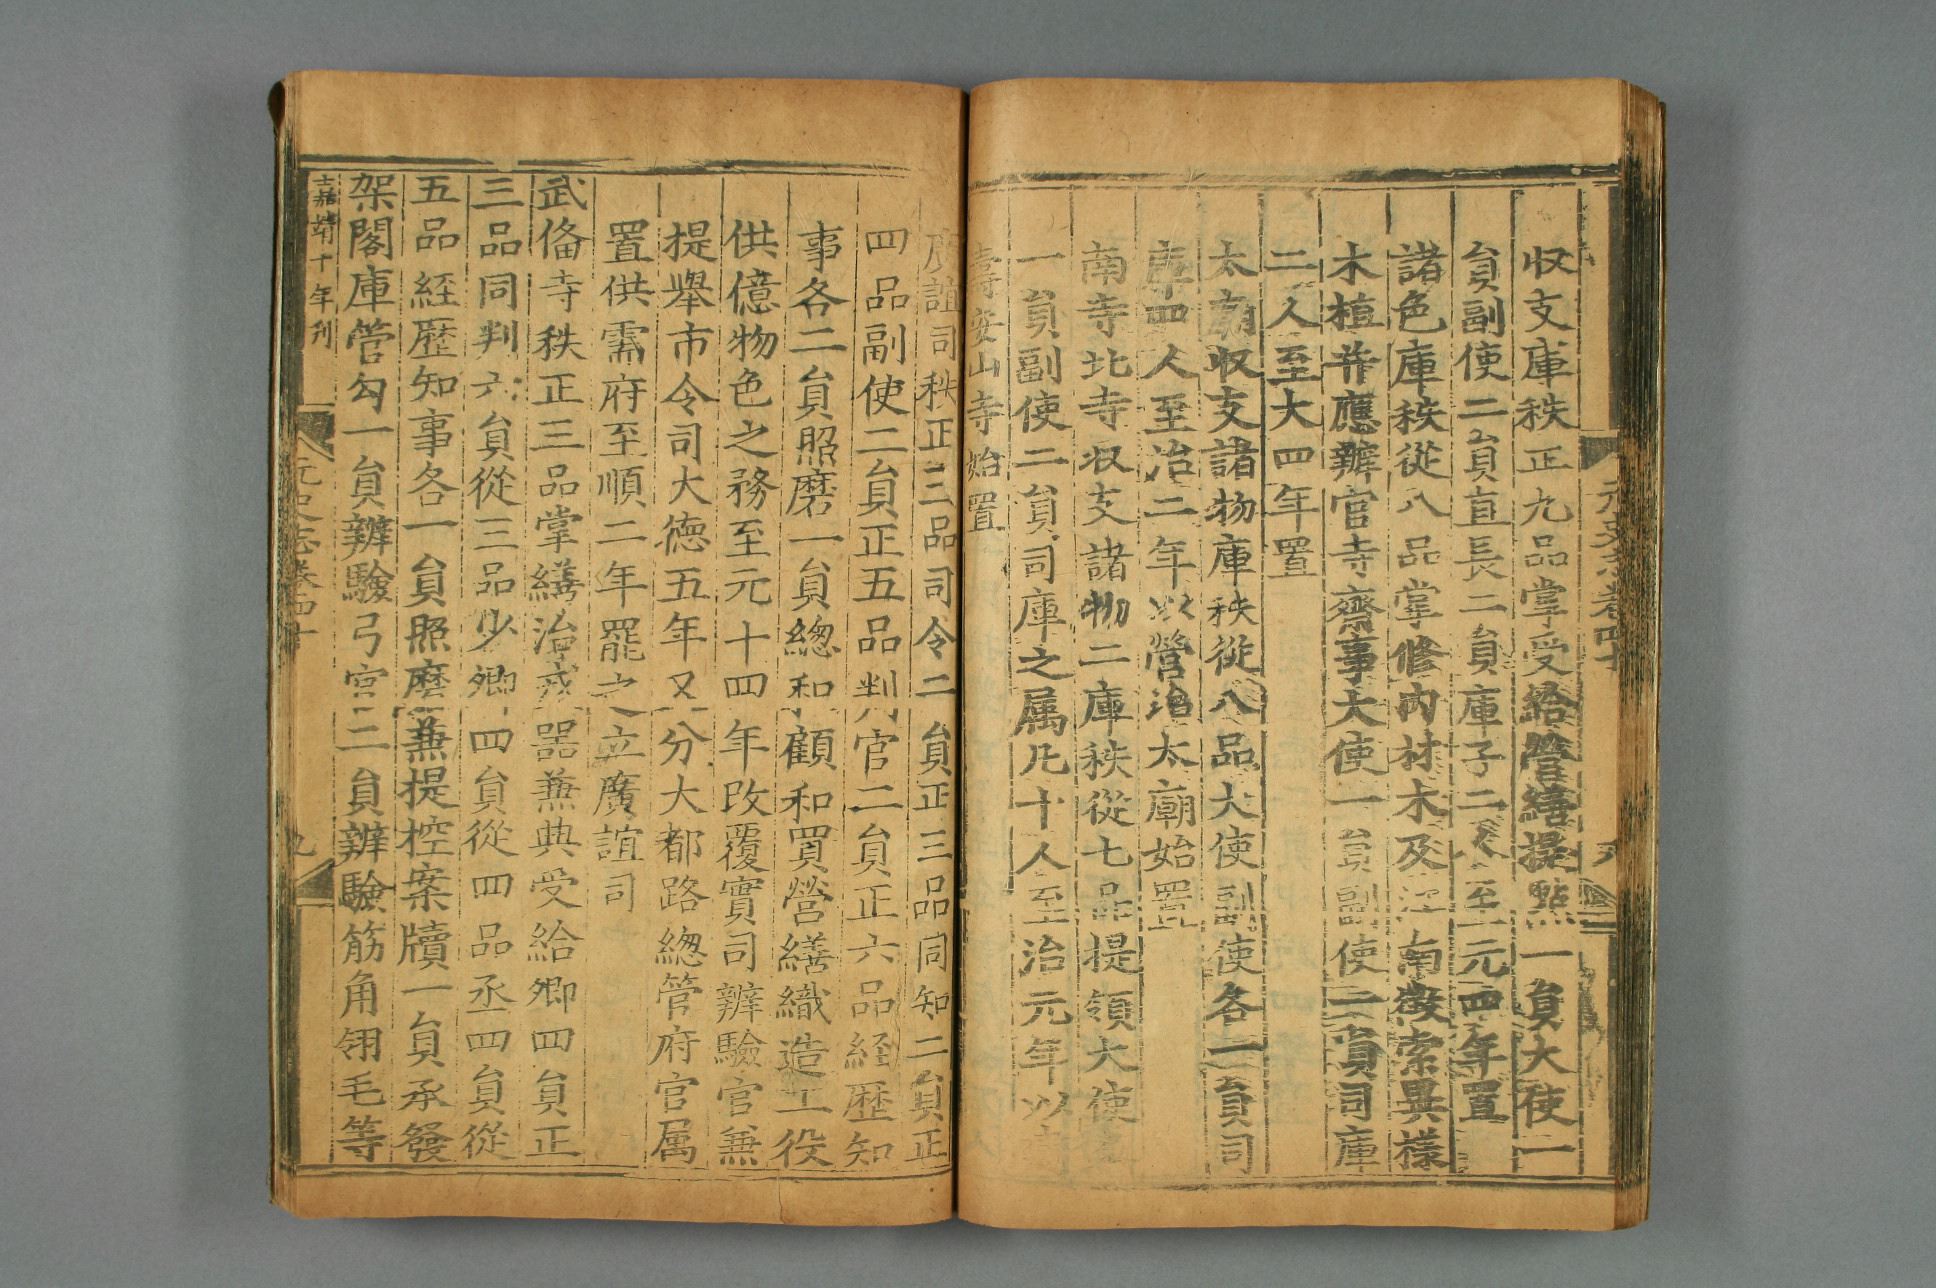 収支庫秩正九品掌受給營繕提㸃一貟大使一
貟副使二貟直長二貟庫子二人至元四年置
諸色庫秩從八品掌修内材木及江南徵索異様
木植并應辦官寺齋事大使一貟副使二貟司庫
二人至大四年置
太廟収支諸物庫秩從八品大使副使各一貟司
庫四人至治二年以營治太廟始置
南寺北寺収支諸物二庫秩從七品提領大使
一貟副使二貟司庫之属凡十人至治元年以
壽安山寺始置
元史志卷四十
九
廣誼司秩正三品司令二貟正三品同知二貟正
四品副使二貟正五品判官二貟正六品経歴知
事各二貟照磨一貟緫和顧和買營繕織造工役
供億物色之務至元十四年改覆實司辨驗官兼
提舉市令司大德五年又分大都路緫管府官属
置供需府至順二年罷之立廣誼司
武俻寺秩正三品掌繕治戎器兼典受給卿四貟正
三品同判六貟從三品少卿四貟從四品丞四貟從
五品経歴知事各一貟照磨兼提控案牘一貟承發
架閣庫管勾一貟辨驗弓官二貟辨驗筋角翎毛等
嘉靖十年刋
元史志卷四十
九